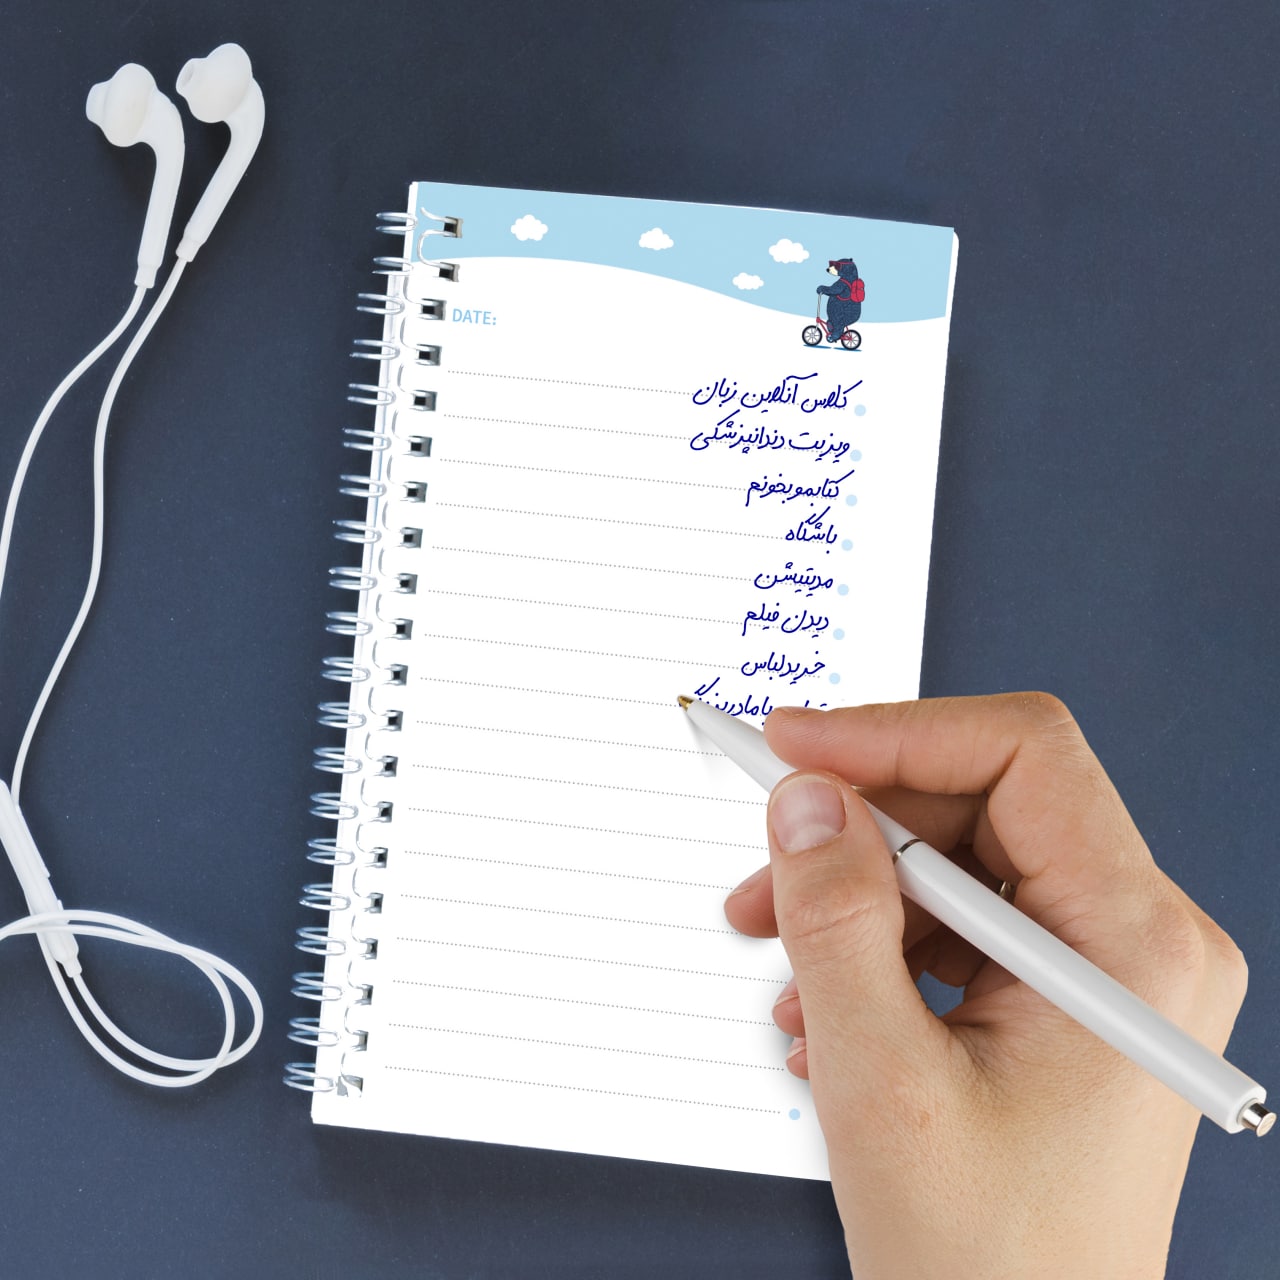 DATE:
کلاس آنلاین زبان
ویزیت دندانپزشکی
کتابمو بخونم
باشگاه
مدیتیشن
دیدن فیلم
خرید لباس
با مادربزرگ